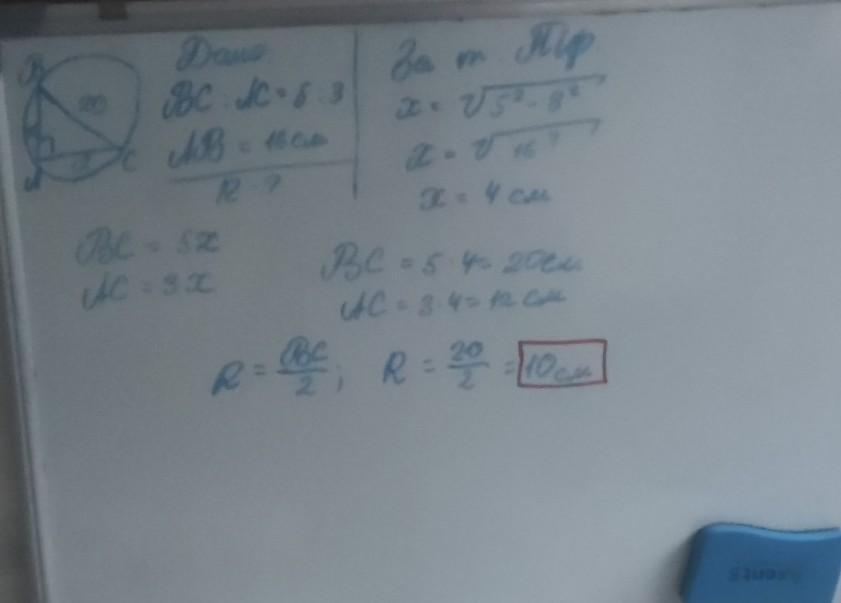 B
20
A
C
Дано
BC : AC = 5 : 3
AB = 16 см
R - ?
За т. Піф.
x = √5² - 3²
x = √16
x = 4 см
BC = 5x
AC = 3x
BC = 5 · 4 = 20 см
AC = 3 · 4 = 12 см
R = BC/2 ; R = 20/2 = 10 см